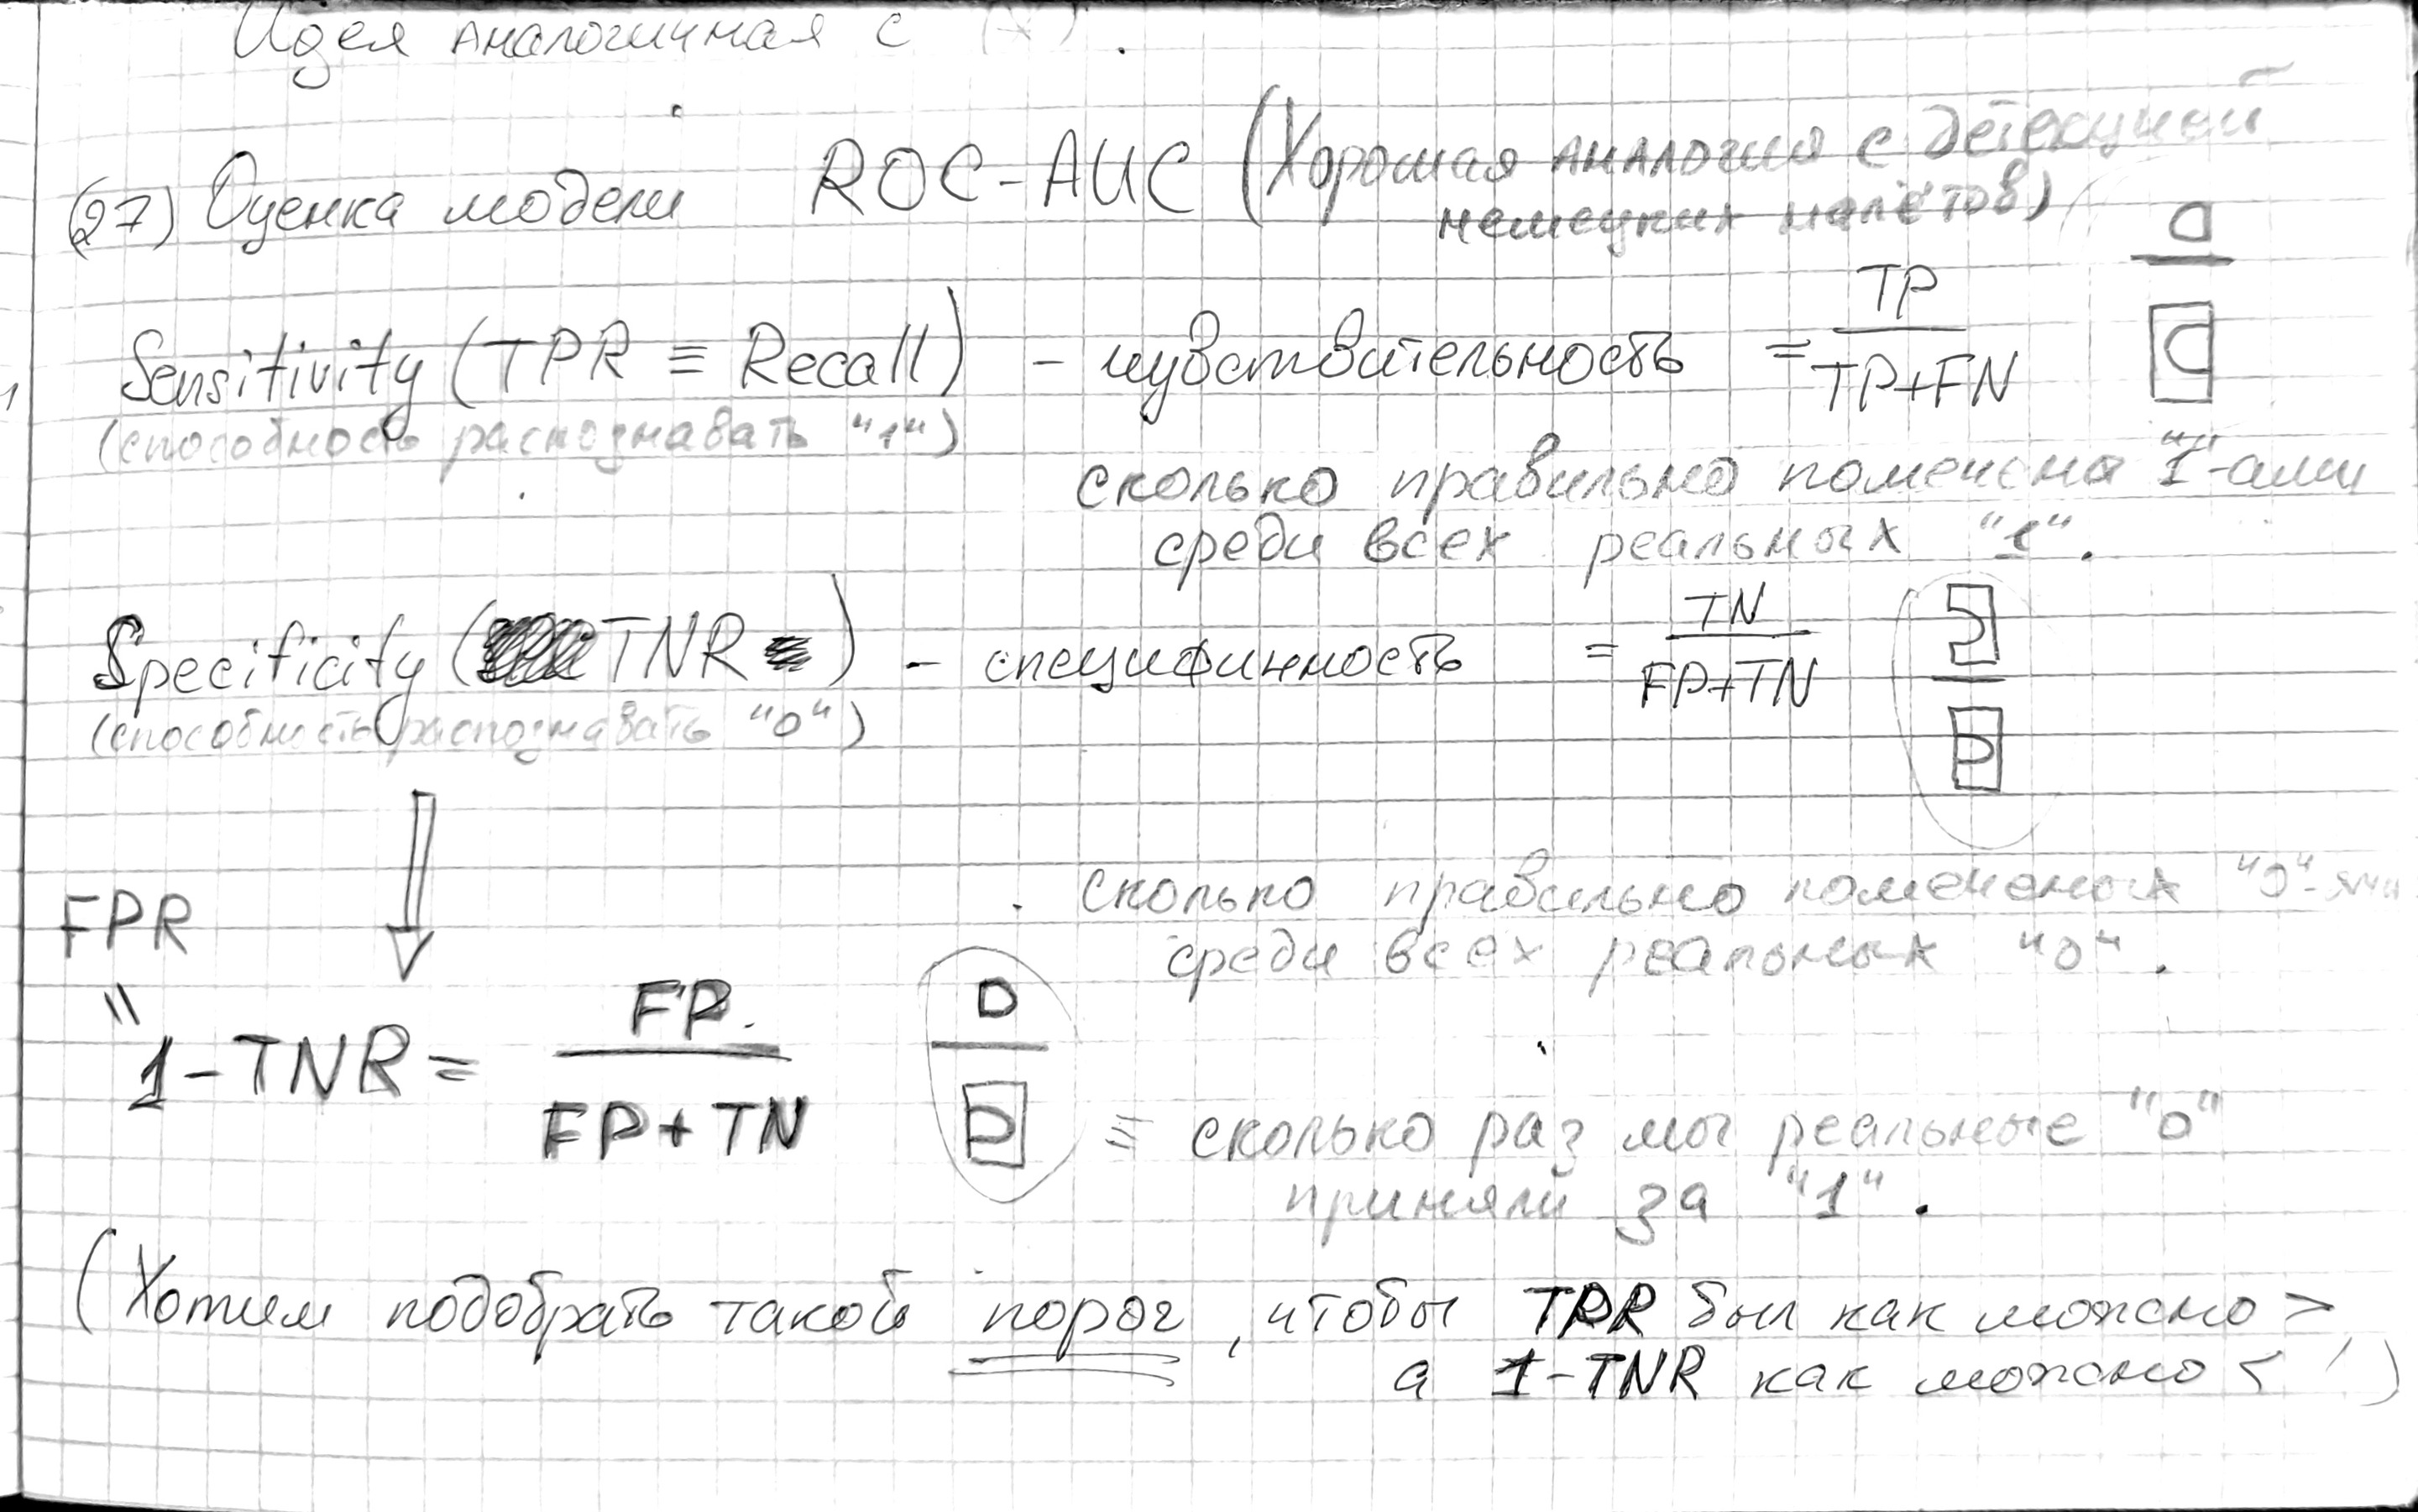 Идея аналогичная с (*).
(27) Оценка модели ROC-AUC (Хорошая аналогия с детекцией
немецких налётов)
Sensitivity (TPR ≡ Recall) - чувствительность = TP / TP+FN
(способность распознавать "1")
сколько правильно помечено "1"-ами
среди всех реальных "1".
Specificity (TNR) - специфичность = TN / FP+TN
(способность распознавать "0")
сколько правильно помеченых "0"-ями
среди всех реальных "0".
FPR
"
1-TNR = FP / FP+TN ≡ сколько раз мы реальные "0"
приняли за "1".
(Хотим подобрать такой порог, чтобы TPR был как можно >
а 1-TNR как можно <)